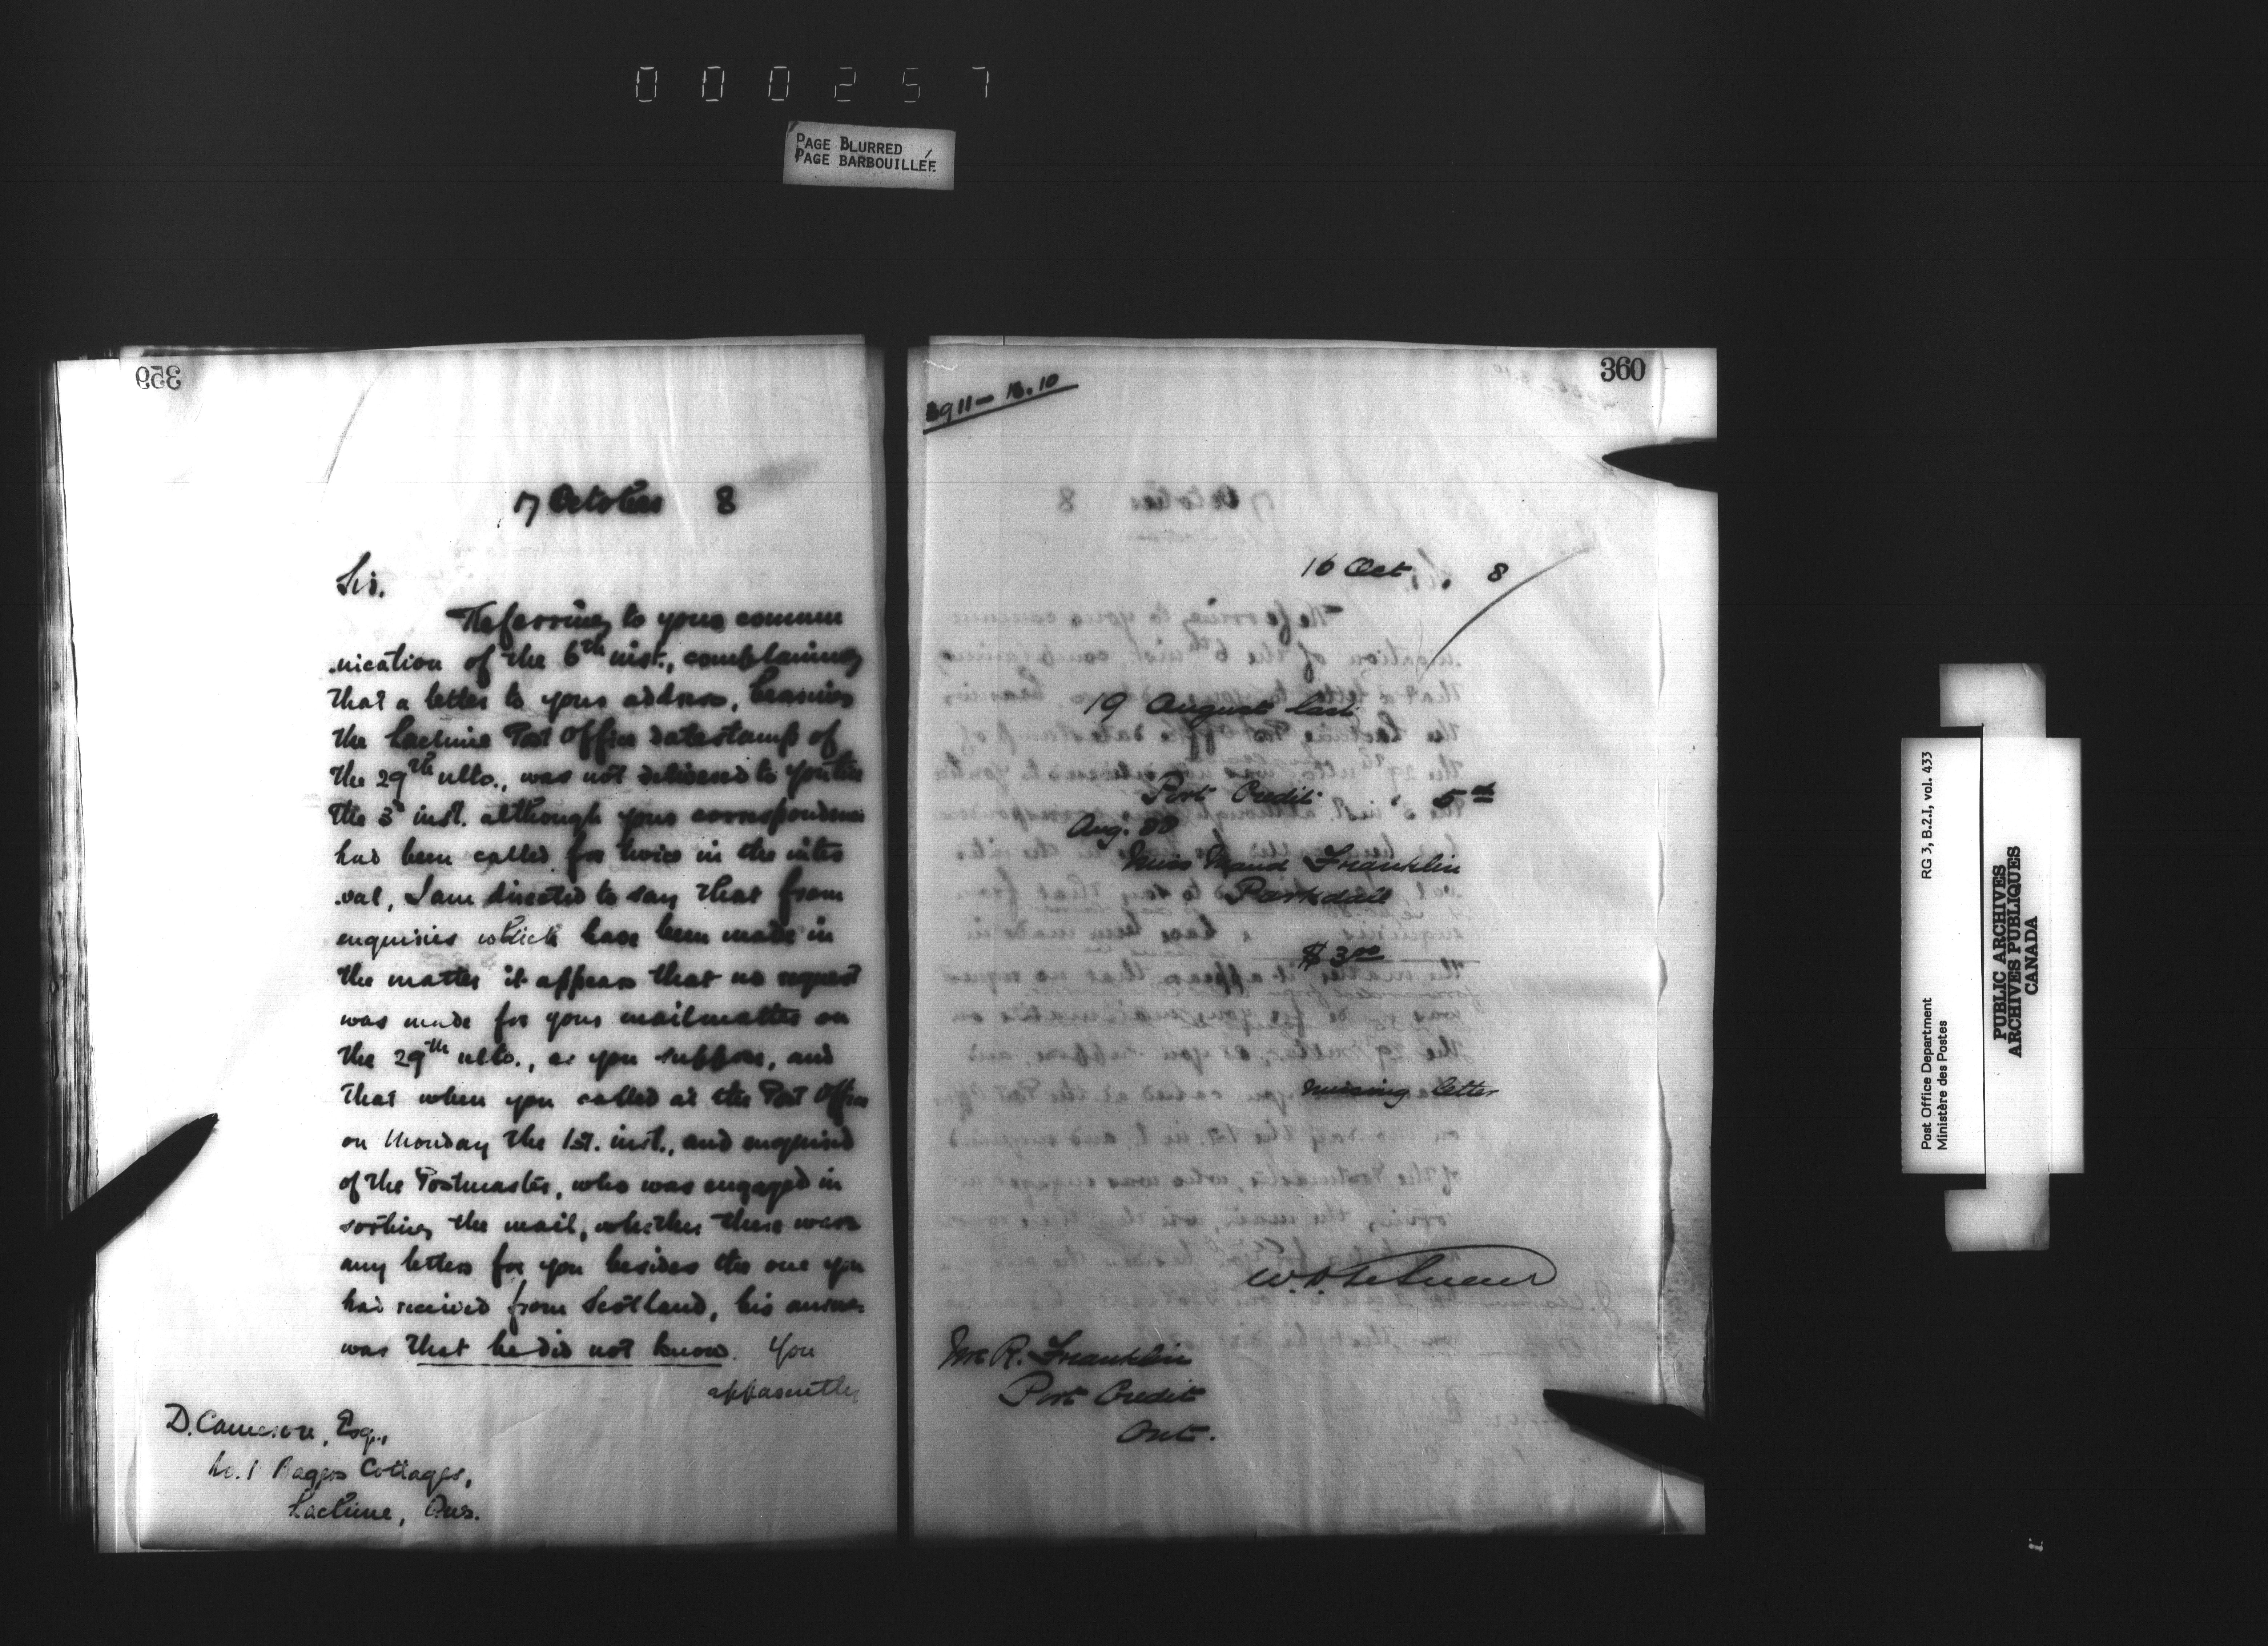 000257
PAGE BLURRED
PAGE BARBOUILLÉE
359
17 October 8
Sir.
Referring to your commu
nication of the 6th inst., complaining
that a letter to your address, bearing
the Lachine Post Office datestamp of
the 29th ulto., was not delivered to you till
the 3d inst. although your correspondence
had been called for twice in the inter
val, I am directed to say that from
enquiries which have been made in
the matter it appears that no request
was made for your mail matter on
the 29th ulto., as you suppose, and
that when you called at the Post Office
on Monday the 1st. inst., and enquired
of the Postmaster, who was engaged in
sorting the mail, whether there were
any letters for you besides the one you
had received from Scotland, his answer
was that he did not know. You
apparently
D. Cameron, Esq.,
No. 1 Cottages,
Lachine, Que.
360
3911 — 10
16 Oct. 8
19 August last
Port Credit 5
Aug. 88
Miss Maud Franklin
Parkdale
$ 3 00
missing letter
Mr R. Franklin
Port Credit
Ont.
Post Office Department
Ministère des Postes
RG 3, B.2.I, vol. 433
PUBLIC ARCHIVES
ARCHIVES PUBLIQUES
CANADA